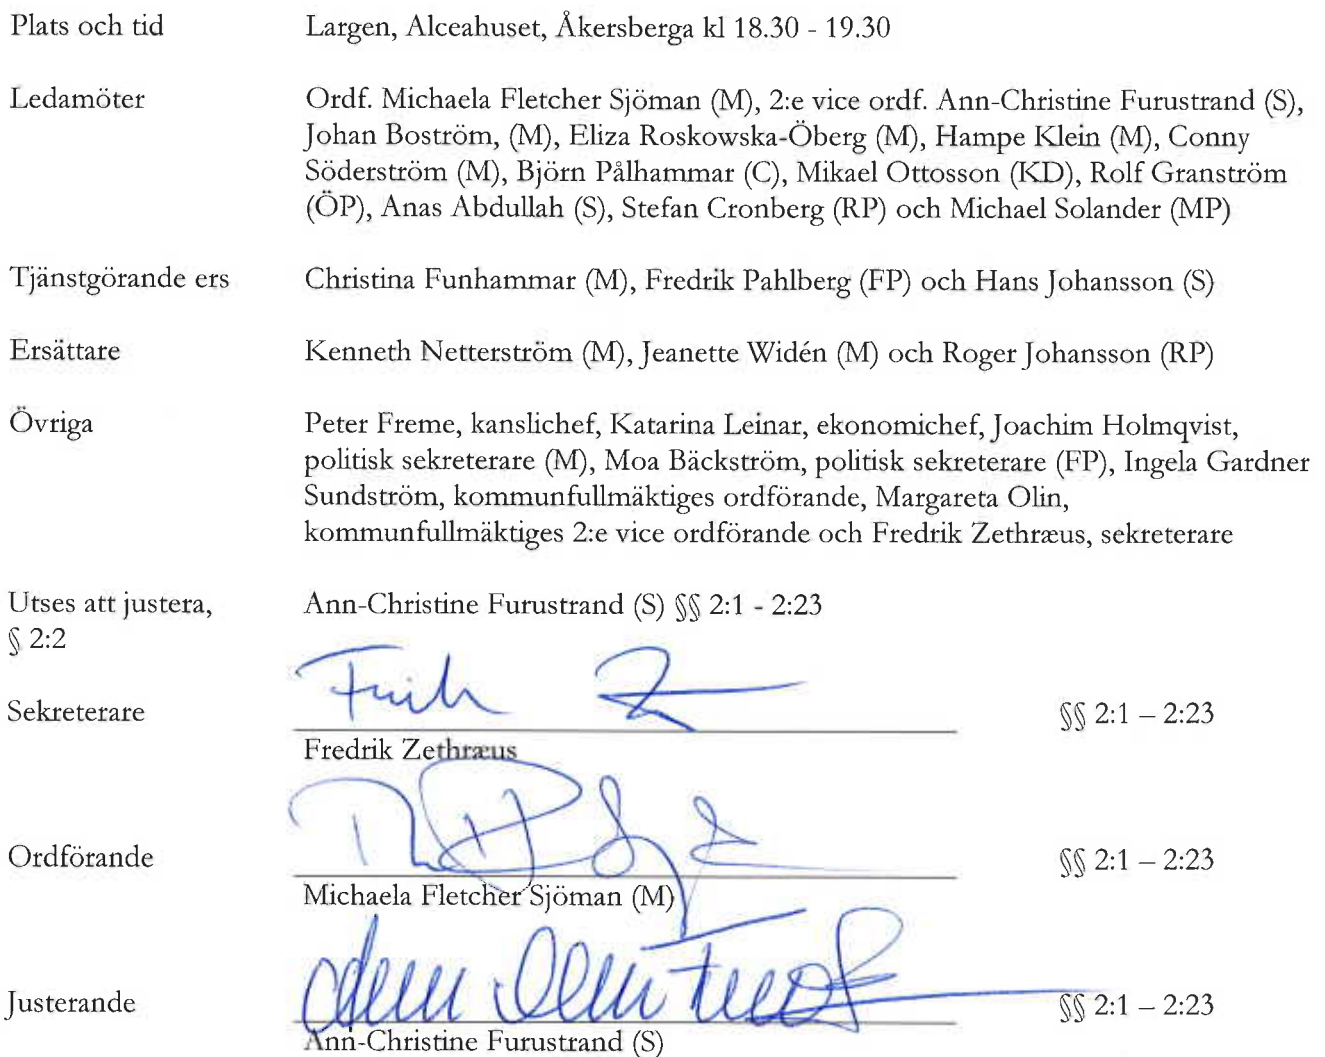 Plats och tid Largen, Alceahuset, Åkersberga kl 18.30 - 19.30
Ledamöter Ordf. Michaela Fletcher Sjöman (M), 2:e vice ordf. Ann-Christine Furustrand (S),
Johan Boström, (M), Eliza Roskowska-Öberg (M), Hampe Klein (M), Conny
Söderström (M), Björn Pålhammar (C), Mikael Ottosson (KD), Rolf Granström
(ÖP), Anas Abdullah (S), Stefan Cronberg (RP) och Michael Solander (MP)
Tjänstgörande ers Christina Funhammar (M), Fredrik Pahlberg (FP) och Hans Johansson (S)
Ersättare Kenneth Netterström (M), Jeanette Widén (M) och Roger Johansson (RP)
Övriga Peter Freme, kanslichef, Katarina Leinar, ekonomichef, Joachim Holmqvist,
politisk sekreterare (M), Moa Bäckström, politisk sekreterare (FP), Ingela Gardner
Sundström, kommunfullmäktiges ordförande, Margareta Olin,
kommunfullmäktiges 2:e vice ordförande och Fredrik Zethræus, sekreterare
Utses att justera, Ann-Christine Furustrand (S) §§ 2:1 - 2:23
§ 2:2
Sekreterare §§ 2:1 – 2:23
Fredrik Zethræus
Ordförande §§ 2:1 – 2:23
Michaela Fletcher Sjöman (M)
Justerande §§ 2:1 – 2:23
Ann-Christine Furustrand (S)